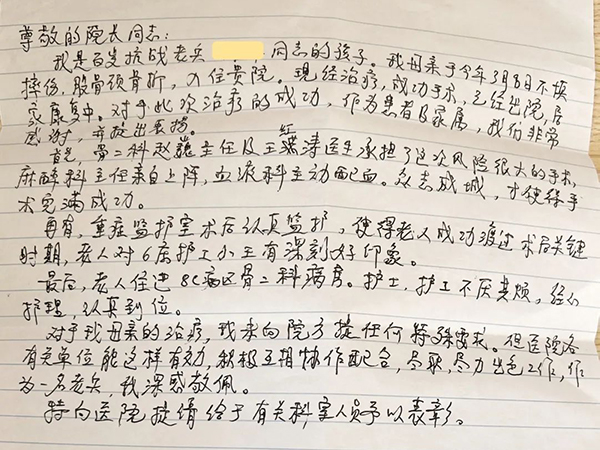 尊敬的院长同志:
我是百岁抗战老兵 同志的孩子。我母亲于今年3月8日不慎
摔伤,股骨颈骨折,入住贵院。现经治疗,成功手术,已经出院,居
家康复中。对于此次治疗的成功,作为患者及家属,我们非常
感谢,并提出表扬。
首先,骨二科赵 主任及王 涛医生承担了这次风险很大的手术,
红
麻醉科主任亲自上阵,血液科主动配血。众志成城,才使得手
术完满成功。
再有,重症监护室术后认真监护,使得老人成功渡过术后关键
时期,老人对6床护工小王有深刻好印象。
最后,老人住进8C病区骨二科病房。护士,护工不厌其烦,经心
护理,认真到位。
对于我母亲的治疗,我未向院方提任何特殊要求。但医院各
有关单位能这样有效积极互相协作配合,尽职,尽力出色工作,作
为一名老兵 我深感敬佩。
特向医院提请给于有关科室人员予以表彰。